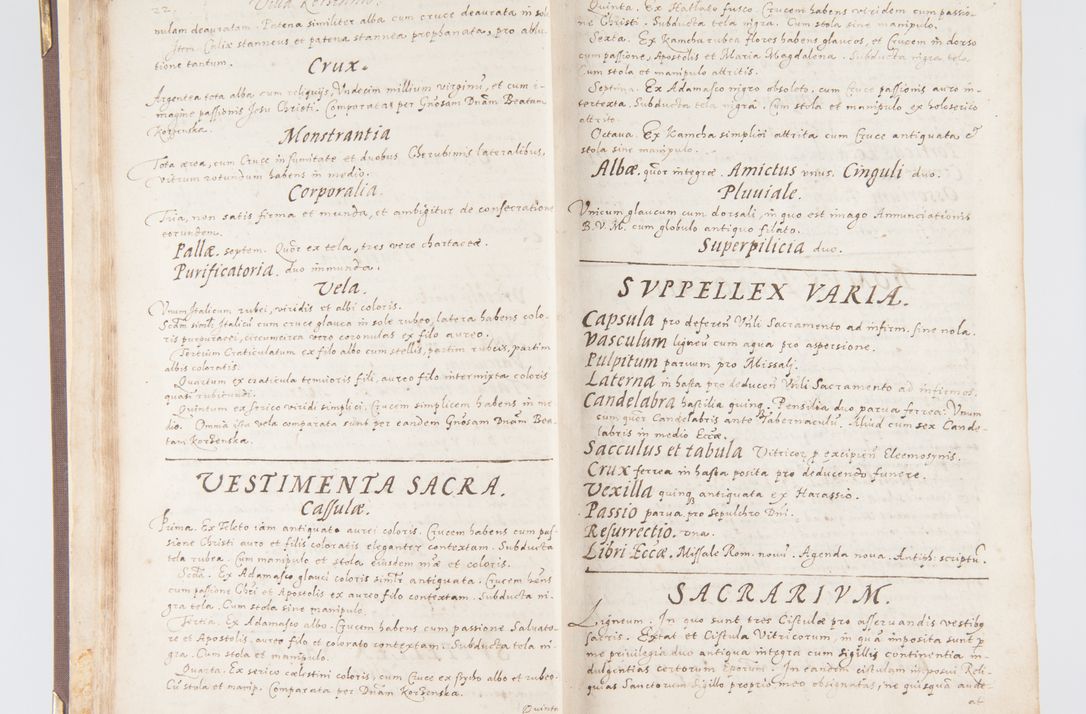 22.
nulam deauratam. Patena similiter alba cum cruce deaurata in sole
Item Calix stanneus et patena stannea prophanatas, pro ablu-
tione tantum.
Crux.
Argentea tota alba cum reliquijs, Undecim millium virginū, et cum i-
magine passionis Jesu Christi. Comparata per Gn̄osam Dnām Beatam
Korzenska.
Monstrantia
Tota aerea, cum Cruce in sumitate et duobus Cherubinis lateralibus,
vitrum rotundum habens in medio.
Corporalia.
Tria, non satis firma et munda, et ambigitur de consecratione
eorundem.
Pallæ. septem. Quōr ex tela, tres vero chartaceæ.
Purificatoria. duo inmunda.
Vela.
Vnum Italicum rubei, viridis et albi coloris.
Scdm simil. Italicū cum cruce glauca in sole rubeo, latera habens colo-
ris purpuraei, circumcirca vero coronulas ex filo aureo.
Tertium Craticulatum ex filo albo cum stellis, partim rubeis, partim
albis coloratis.
Quartum ex craticula tenuioris fili, aureo filo intermixta coloris
quasi rubicundi.
Quintum ex serico viridi simplici, Crucem simplicem habens in me
dio. Omnia ista vela comparata sunt per eandem Gn̄osam Dnām Bea-
tam Korzenska.
VESTIMENTA SACRA.
Cassulæ.
Prima. Ex Teleto iam antiquato aurei coloris. Crucem habens cum pas-
sione Christi auro et filis coloratis eleganter contextam. Subducta
tela rubea. Cum manipulo et stola eiusdem māe et coloris.
Scda. Ex Adamasco glauci coloris simlr antiquata. Crucem hēns
cum passione Chri et Apostolis ex aureo filo contextam. Subducta ni-
gra tela. Cum stola sine manipulo.
Tertia. Ex Adamasco albo. Crucem habens cum passione Salvato-
re et Apostolis, aureo filo et colorato contextam. Subducta tela ni-
gra. Cum stola et manipulo.
Quarta. Ex serico cælestini coloris, cum Cruce ex serico albo et rubeo.
Cū stola et manip. Comparata per Dnām Korzenska.
Quinta
Quinta. Ex Hatłaso fusco. Crucem habens viridem cum passio-
ne Christi. Subducta tela nigra. Cum stola sine manipulo.
Sexta. Ex Kamcha rubea flores habens glaucos, et Crucem in dorso
cum passione, Apostolis et Maria Magdalena. Subducta nigra tela
Cum stola et manipulo attritis.
Septima. Ex Adamasco nigro obsoleto, cum Cruce passionis auro in-
tertexta. Subducta tela nigra. Cum stola et manipulo ex holoserico
attrito.
Octava. Ex Kamcha simplici attrita cum Cruce antiquata et
stola sine manipulo.
Albæ. quōr integræ. Amictus vnus. Cinguli duo.
Pluuiale.
Vnicum glaucum cum dorsali, in quo est imago Annunciationis
B.V.M. cum globulo antiquo filato.
Superpilicia duo.
SVPPELLEX VARIA.
Capsula pro deferen̄ Vnli Sacramento ad infirm. sine nola.
Vasculum ligneū cum aqua pro aspersione.
Pulpitum paruum pro Missalj.
Laterna in hasta pro deducen̄ Vnli Sacramento ad infirmos.
Candelabra hastilia quinq. Pensilia duo parua ferrea. Vnum
cum quōr Candelabris ante Tabernaculū. Aliud cum sex Cande-
labris in medio Eccæ.
Sacculus et tabula Vitricor, p excipien̄ Eleemosynis.
Crux ferrea in hasta posita pro deducendo funere.
Vexilla quinq antiquata ex Harassio.
Passio parua pro sepulchro Dn̄i.
Resurrectio. vna.
Libri Eccæ. Missale Rom. novū. Agenda nova. Antiph: scriptū.
SACRARIVM.
Ligneum. In quo sunt tres Cistulæ pro asservandis vestibꝰ
sacris. Extat et Cistula Vitricorum, in quā imposita sunt p
me privilegia duo antiqua integra cum sigillis continentia in-
dulgentias certorum Eporum. In eandem cistulam imposui Reli-
quias Sanctorum sigillo proprio meo obsignatas, ne quisquā aude-
at